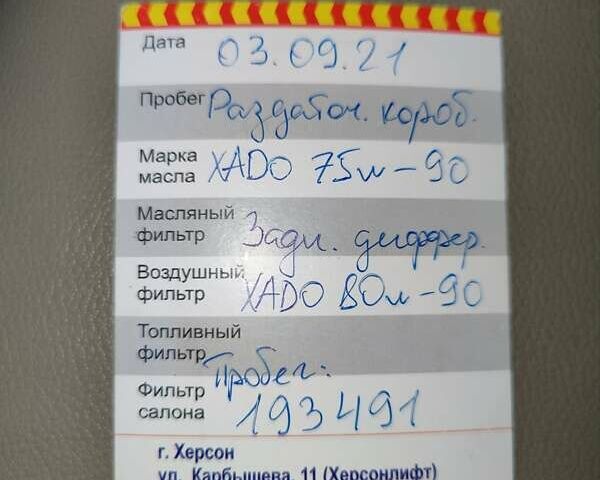 Дата 03.09.21
Пробег Раздаточ. короб.
Марка
масла XADO 75w-90
Масляный
фильтр Задн. диффер.
Воздушный
фильтр XADO 80w-90
Топливный
фильтр
Пробег:
Фильтр
салона 193491
г. Херсон
ул. Карбышева, 11 (Херсонлифт)